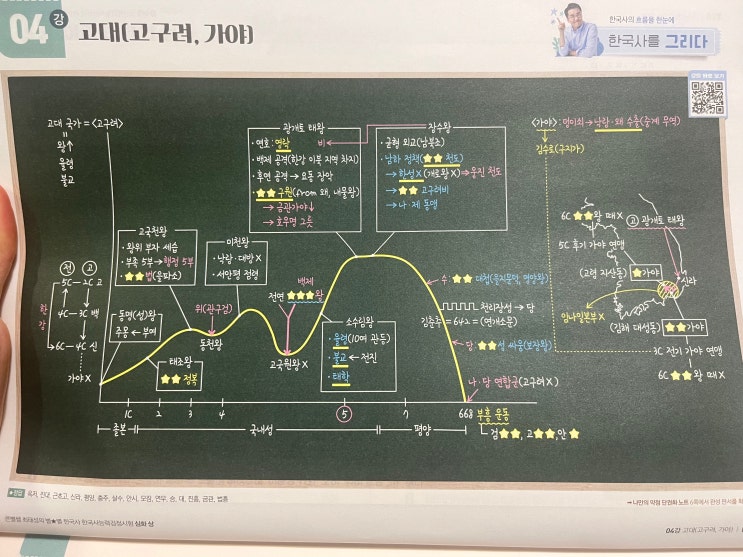 04 강
고대(고구려, 가야)
한국사의 흐름을 한눈에
한국사를 그리다
고대 국가 = <고구려>
왕
율령
불교
전 고
5C - 2C 고
4C - 3C 백
6C - 4C 신
가야X
한강
고국천왕
· 왕위 부자 세습
· 부족 5부 → 행정 5부
· ★★법(을파소)
동명(성)왕
주몽 ← 부여
태조왕
★★ 정복
미천왕
· 낙랑·대방X
· 서안평 점령
위(관구검)
동천왕
광개토 태왕
· 연호: 영락
· 백제 공격(한강 이북 지역 차지)
· 후연 공격 → 요동 장악
· ★★ 구원(from 왜, 내물왕)
→ 금관가야↓
→ 호우명 그릇
비
장수왕
· 균형 외교(남북조)
· 남하 정책(★★ 천도)
→ 한성X(개로왕X) → 웅진 천도
→ ★★ 고구려비
→ 나·제 동맹
백제
전연 ★★★왕
고국원왕X
소수림왕
· 율령(10여 관등)
· 불교 ← 전진
· 태학
수: ★★ 대첩(을지문덕, 영양왕)
천리장성 → 당
김춘추 = 642 = (연개소문)
당: ★★성 싸움(보장왕)
나·당 연합군(고구려X)
1C 2 3 4 5 7 668
졸본 국내성 평양
부흥 운동
검★★, 고★★, 안★
<가야>: 덩이쇠 → 낙랑·왜 수출(중계 무역)
김수로(구지가)
6C ★★왕 때X
고 광개토 태왕
5C 후기 가야 연맹
(고령 지산동) ★가야
신라
임나일본부X
(김해 대성동) ★★가야
3C 전기 가야 연맹
6C ★★왕 때X
★정답 옥저, 진대, 근초고, 신라, 평양, 충주, 살수, 안시, 모잠, 연무, 승, 대, 진흥, 금관, 법흥
큰별쌤 최태성의 별★별 한국사 한국사능력검정시험 심화 상
04강 고대(고구려, 가야)